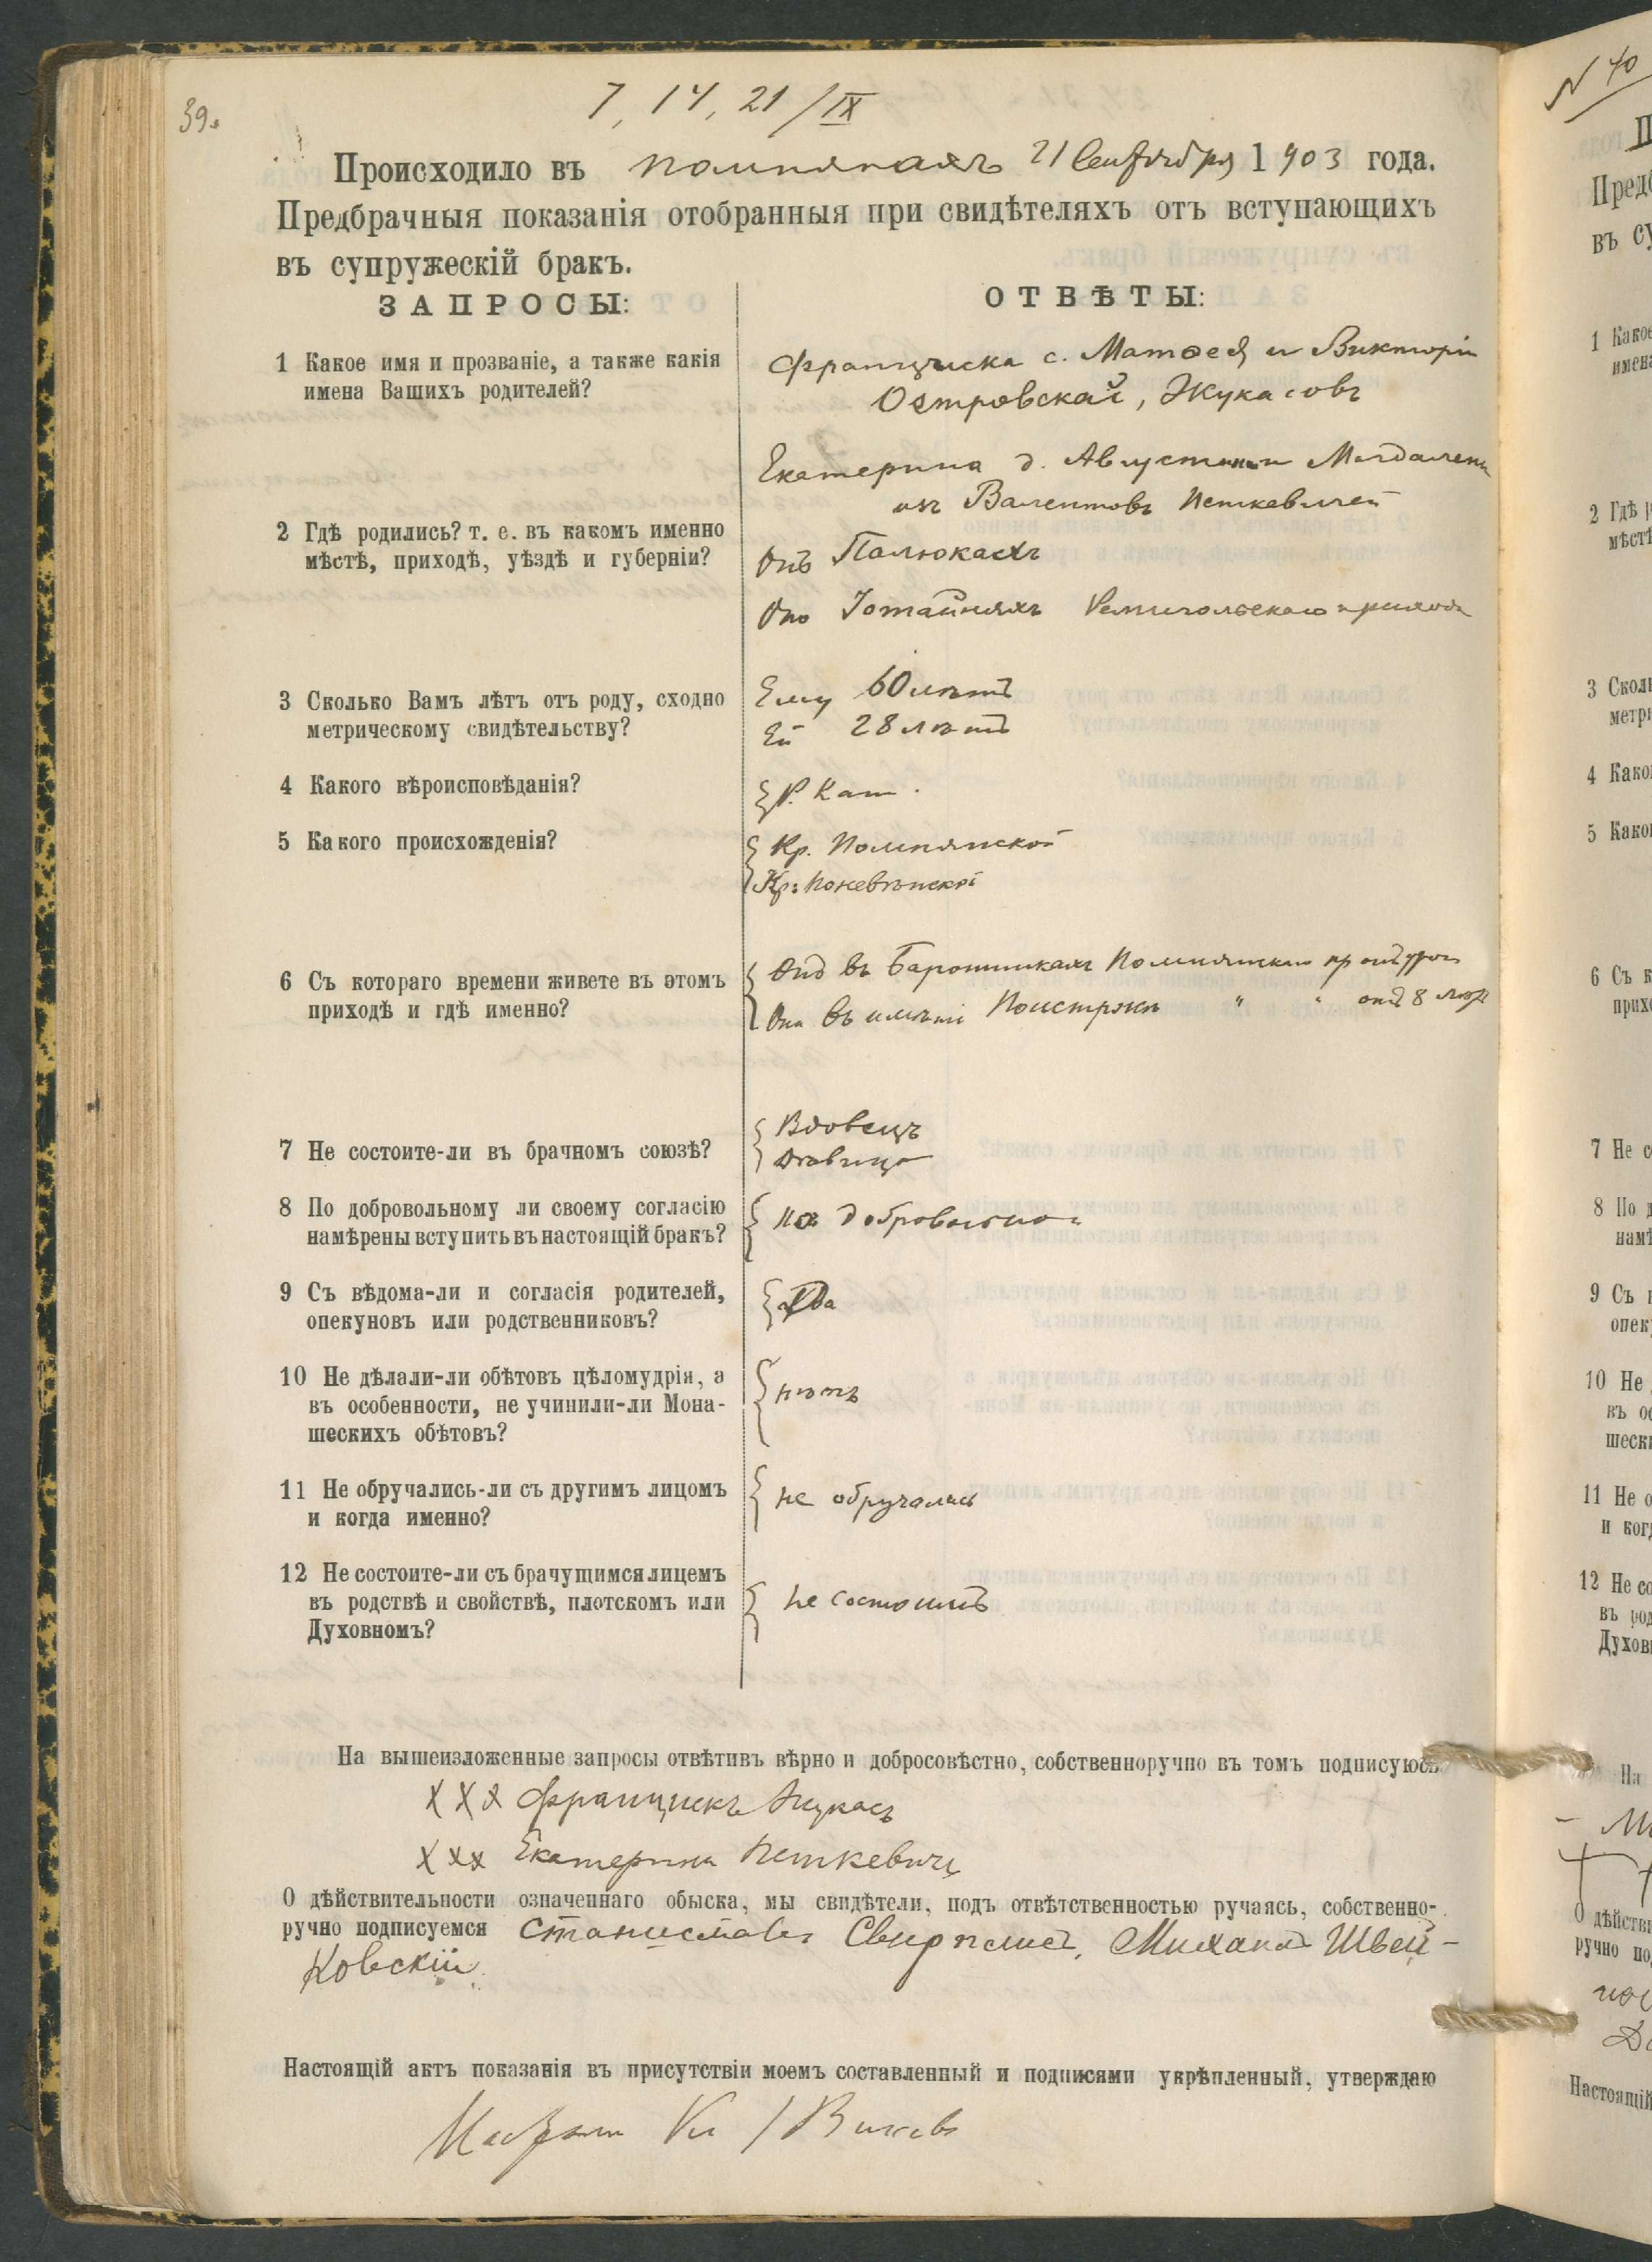 39.
7, 14, 21/IX
Происходило въ Помпянахъ 21 Сентября 1903 года.
Предбрачныя показанія отобранныя при свидѣтеляхъ отъ вступающихъ
въ супружескій бракъ.
ЗАПРОСЫ:
1 Какое имя и прозваніе, а также какія
имена Вашихъ родителей?
2 Гдѣ родились? т. е. въ какомъ именно
мѣстѣ, приходѣ, уѣздѣ и губерніи?
3 Сколько Вамъ лѣтъ отъ роду, сходно
метрическому свидѣтельству?
4 Какого вѣроисповѣданія?
5 Какого происхожденія?
6 Съ котораго времени живете въ этомъ
приходѣ и гдѣ именно?
7 Не состоите-ли въ брачномъ союзѣ?
8 По добровольному ли своему согласію
намѣрены вступить въ настоящій бракъ?
9 Съ вѣдома-ли и согласія родителей,
опекуновъ или родственниковъ?
10 Не дѣлали-ли обѣтовъ цѣломудрія, а
въ особенности, не учинили-ли Мона-
шескихъ обѣтовъ?
11 Не обручались-ли съ другимъ лицомъ
и когда именно?
12 Не состоите-ли съ брачущимся лицемъ
въ родствѣ и свойствѣ, плотскомъ или
Духовномъ?
ОТВѢТЫ:
Франциска с. Матѳея и Викторіи
Островской, Жукасовъ
Екатерина д. Августина и Магдалены
изъ Валентовъ Петкевичей
Онъ Палюкахъ
Она Іотайняхъ Ремигольскаго прихода
Ему 60 лѣтъ
Ей 28 лѣтъ
Р. Кат.
Кр. Помпянской
Кр. Поневѣжской
Онъ въ Баронишкахъ Помпянскаго пр отъ урож
Она въ имѣніи Поистржи " " отъ 8 лѣтъ
Вдовецъ
Дѣвица
По добровольно
Да
нѣтъ
не обручались
не состоимъ
На вышеизложенные запросы отвѣтивъ вѣрно и добросовѣстно, собственноручно въ томъ подписуюсь
ХХХ Францискъ Жукасъ
ХХХ Екатерина Петкевичъ
О дѣйствительности означеннаго обыска, мы свидѣтели, подъ отвѣтственностью ручаясь, собственно-
ручно подписуемся Станиславъ Свирплисъ, Михаилъ Швей-
ковскій.
Настоящій актъ показанія въ присутствіи моемъ составленный и подписями укрѣпленный, утверждаю
N 40